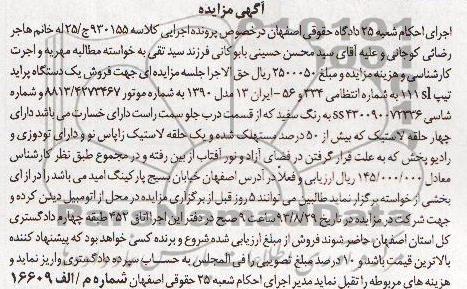 آگهی مزایده
اجرای احکام شعبه ۲۵ دادگاه حقوقی اصفهان درخصوص پرونده اجرایی کلاسه ۹۳۰۱۵۵ج/۲۵ له خانم هاجر
رضائی کوجانی و علیه آقای سید محسن حسینی بابوکانی فرزند سید تقی به خواسته مطالبه مهریه و اجرت
کارشناسی و هزینه مزایده و مبلغ ۲۵۰۰۰۵۰ ریال حق الاجرا جلسه مزایده ای جهت فروش یک دستگاه پراید
تیپ ۱۱۱ sl به شماره انتظامی ۳۳۴و ۵۶ -ایران ۱۳ مدل ۱۳۹۰ به شماره موتور ۸۸۱۳/۴۲۷۳۴۶۷ و شماره
شاسی ss۴۳۰۰۹۰۰۷۲۳۳۶ به رنگ سفید که از قسمت درب جلو سمت راست دارای خسارت می باشد دارای
چهار حلقه لاستیک که بیش از ۵۰ درصد مستهلک شده و یک حلقه لاستیک زاپاس نو و دارای تودوزی و
رادیو پخش که به علت قرار گرفتن در فضای آزاد و نور آفتاب از بین رفته و در مجموع طبق نظر کارشناس
معادل ۱۴۵/۰۰۰/۰۰۰ ریال ارزیابی و فعلا در آدرس اصفهان خیابان بسیج پارکینگ امید می باشد را در ازای
بخشی از خواسته برگزار نماید طالبین می توانند ۵ روز قبل از برگزاری مزایده در محل از اتومبیل دیدن کرده و
جهت شرکت در مزایده در تاریخ ۹۳/۸/۲۹ ساعت ۹ صبح در دفتر این اجرا اتاق ۳۵۲ طبقه چهارم دادگستری
کل استان اصفهان حاضر شوند فروش از مبلغ ارزیابی شده شروع و برنده کسی خواهد بود که پیشنهاد کننده
بالاترین قیمت باشد و ۱۰ درصد مبلغ تصویبی را فی المجلس به حساب سپرده دادگستری واریز نماید و
هزینه های مربوطه را تقبل نماید مدیر اجرای احکام شعبه ۲۵ حقوقی اصفهان شماره م / الف ۱۶۶۰۹